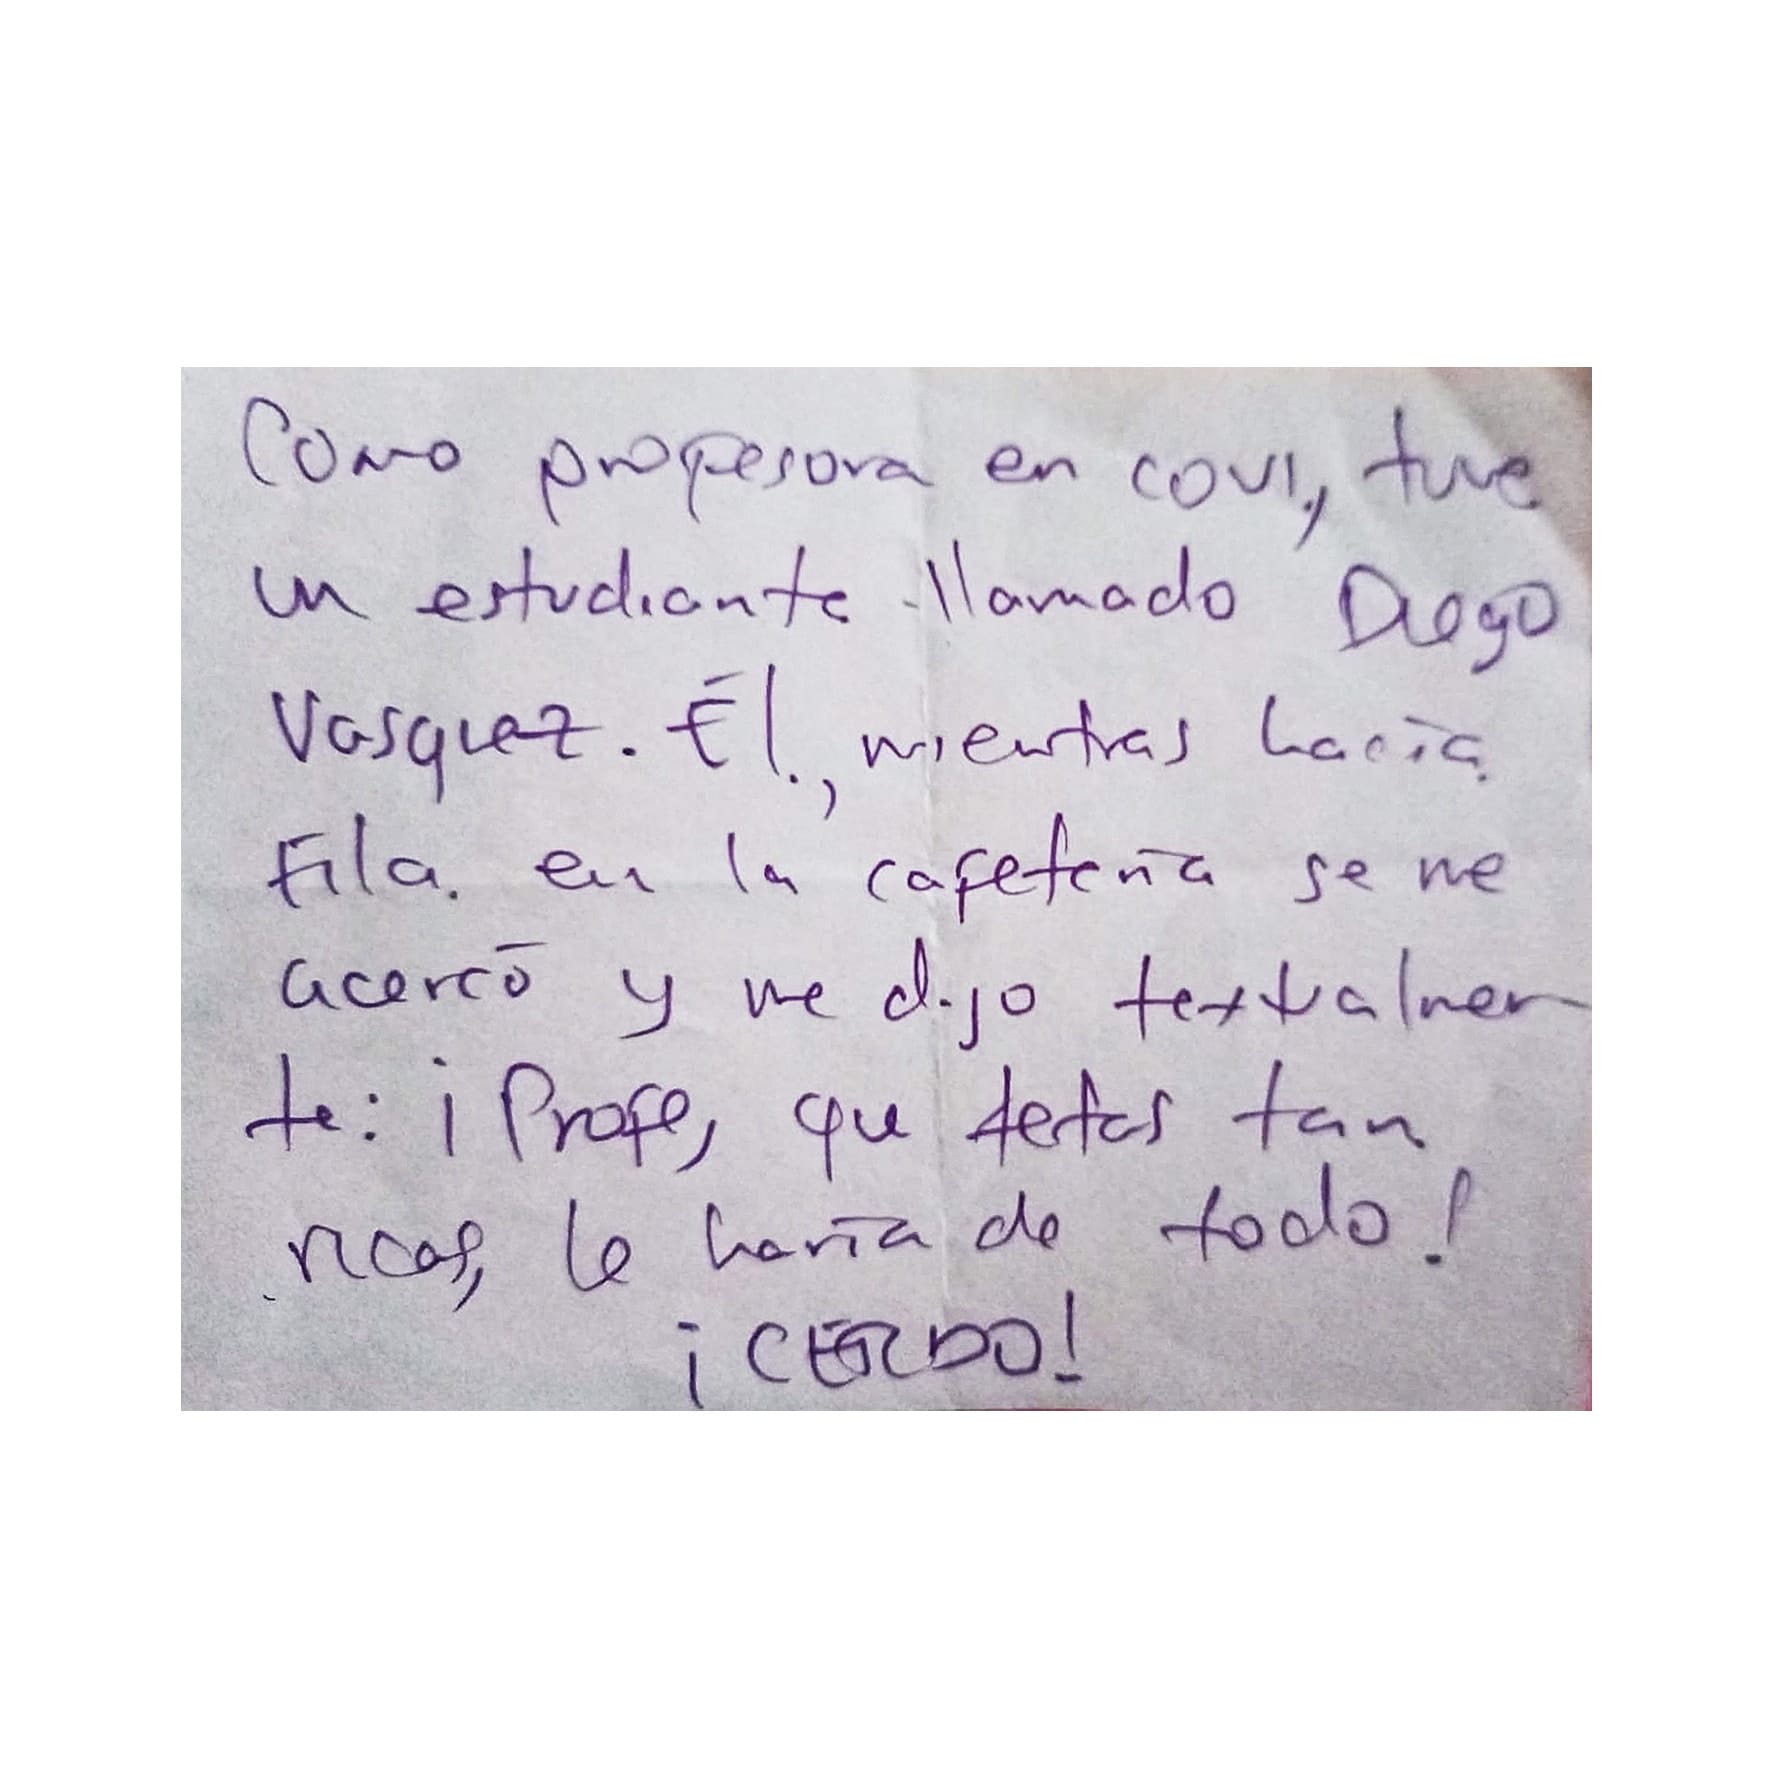 Como profesora en COVI, tuve
un estudiante llamado Diego
Vasquez. Él, mientras hacía
fila en la cafetería se me
acercó y me dijo textualmen
te: ¡Profe, que tetas tan
ricas, le haría de todo!
¡CERDO!